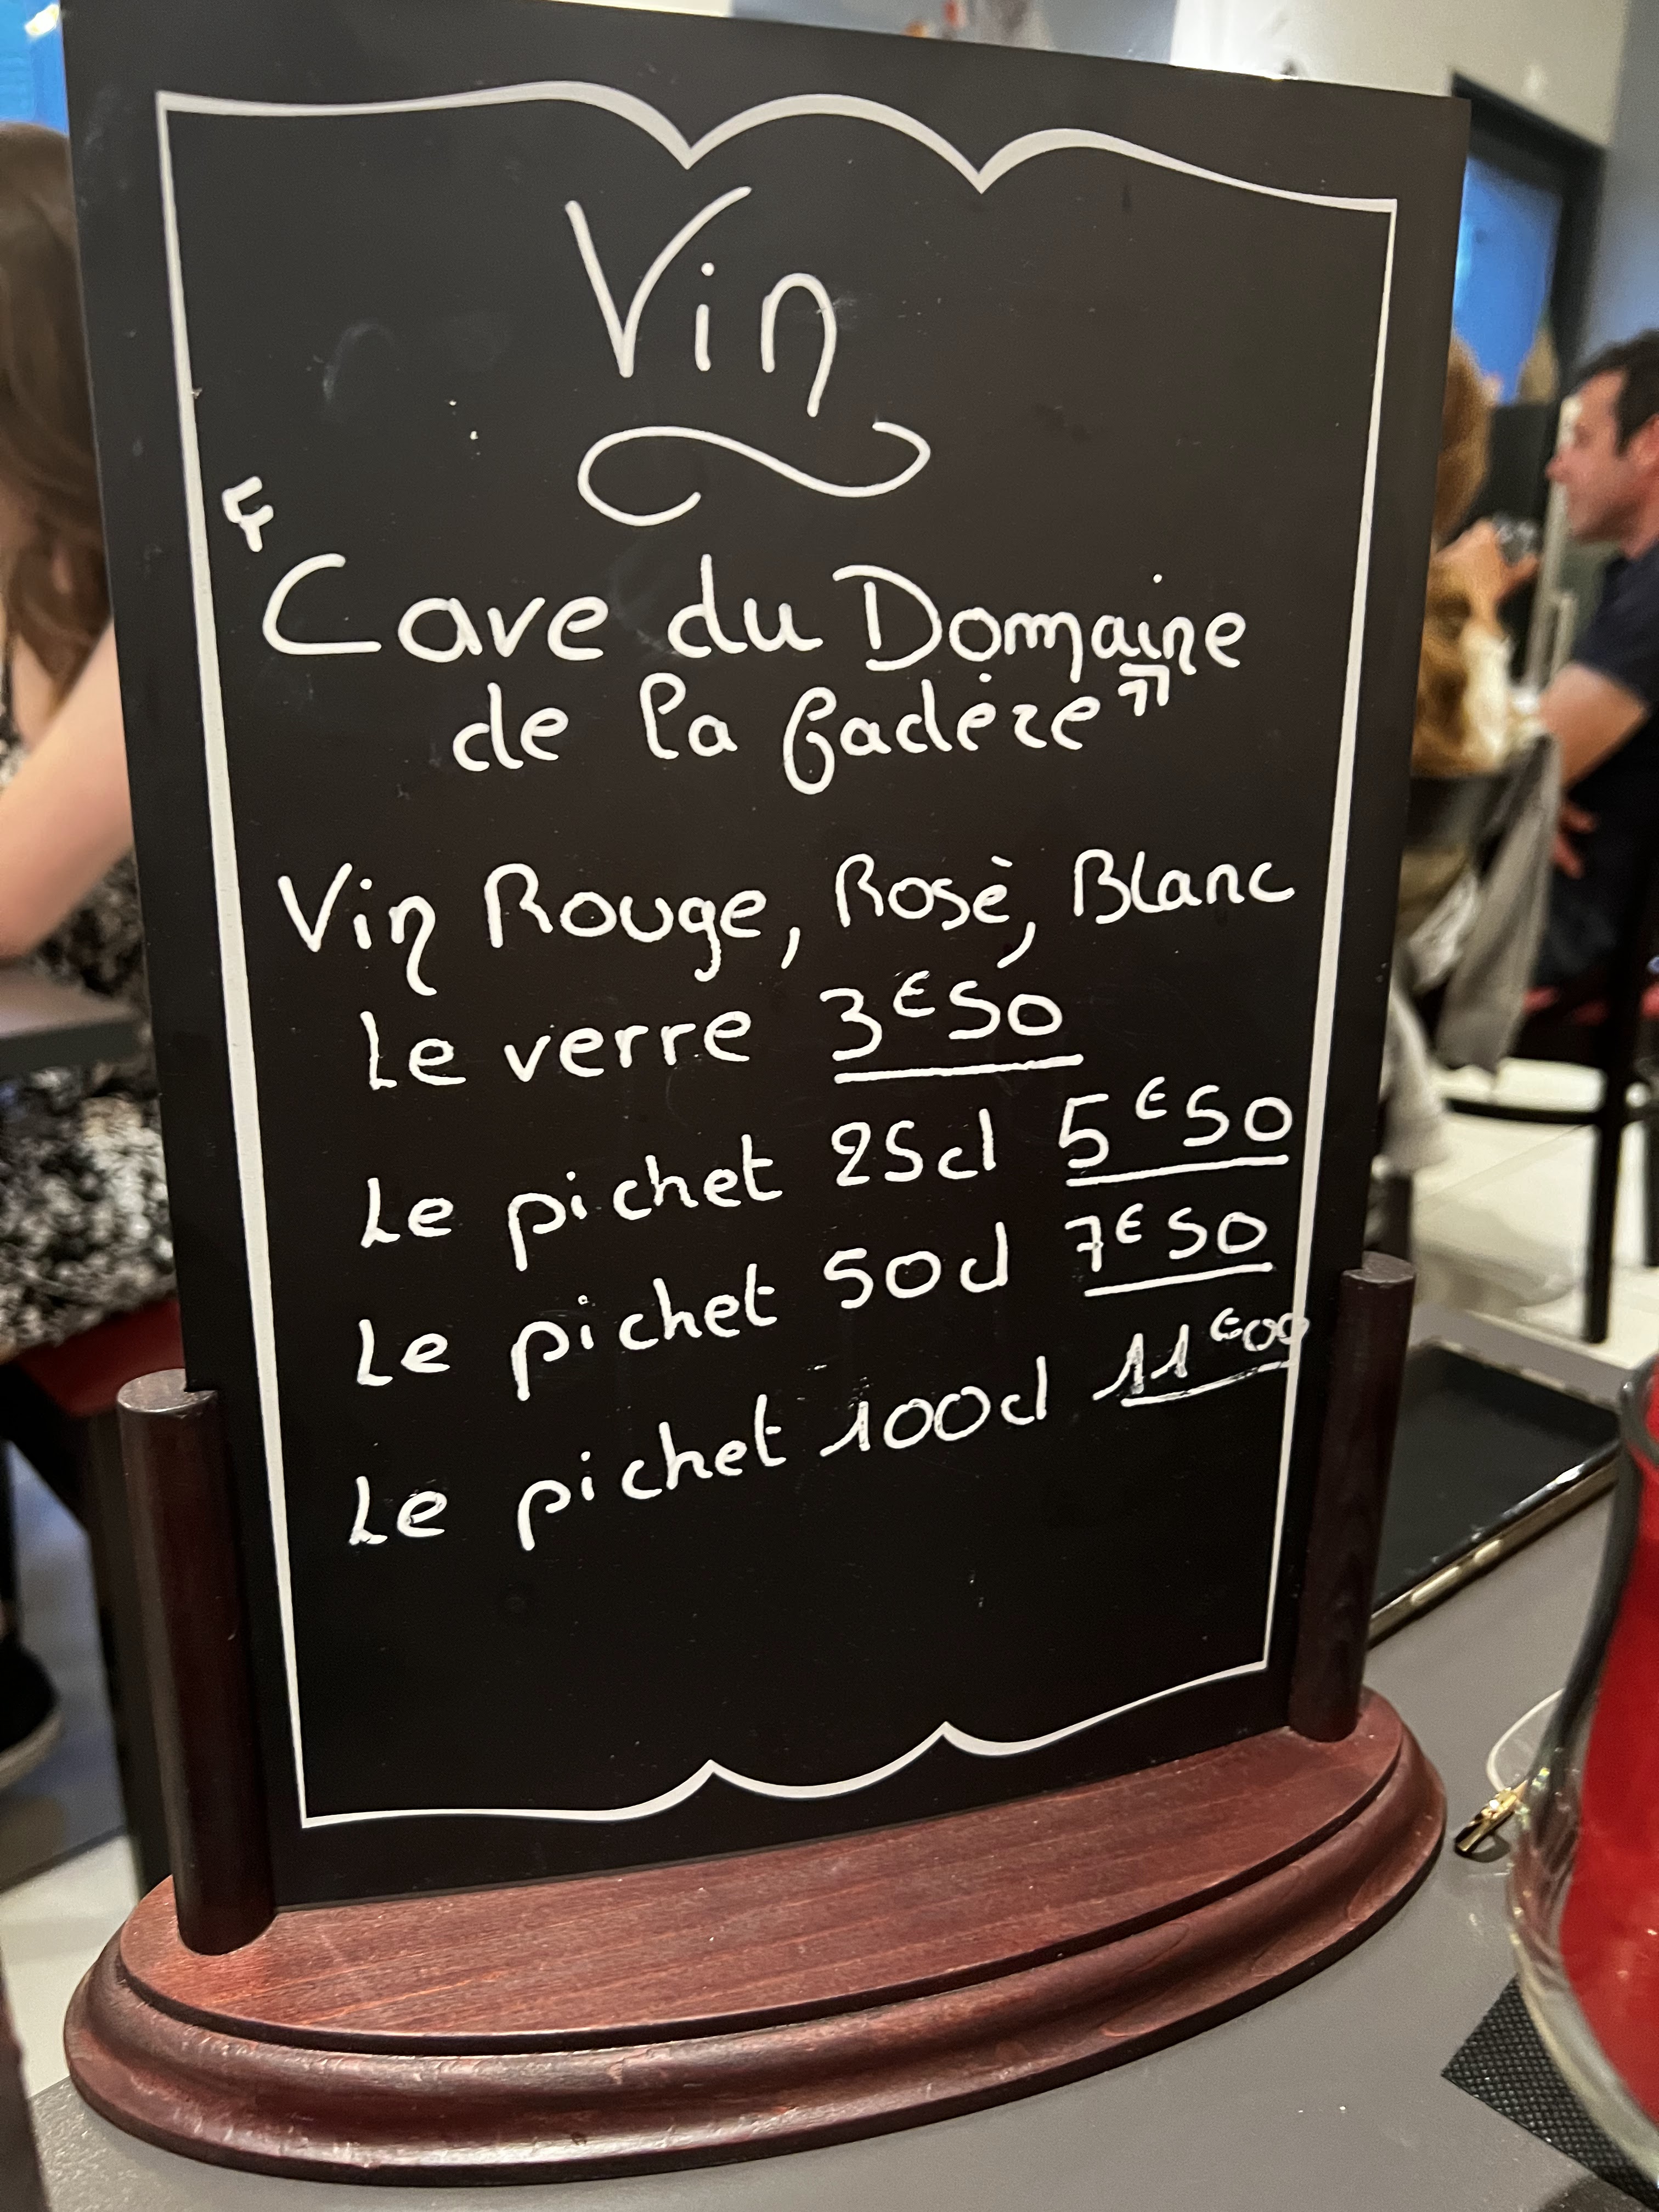 Vin
"Cave du Domaine
de la Gadère"
Vin Rouge, Rosè, Blanc
Le verre 3€50
Le pichet 25cl 5€50
Le pichet 50cl 7€50
Le pichet 100cl 11€00